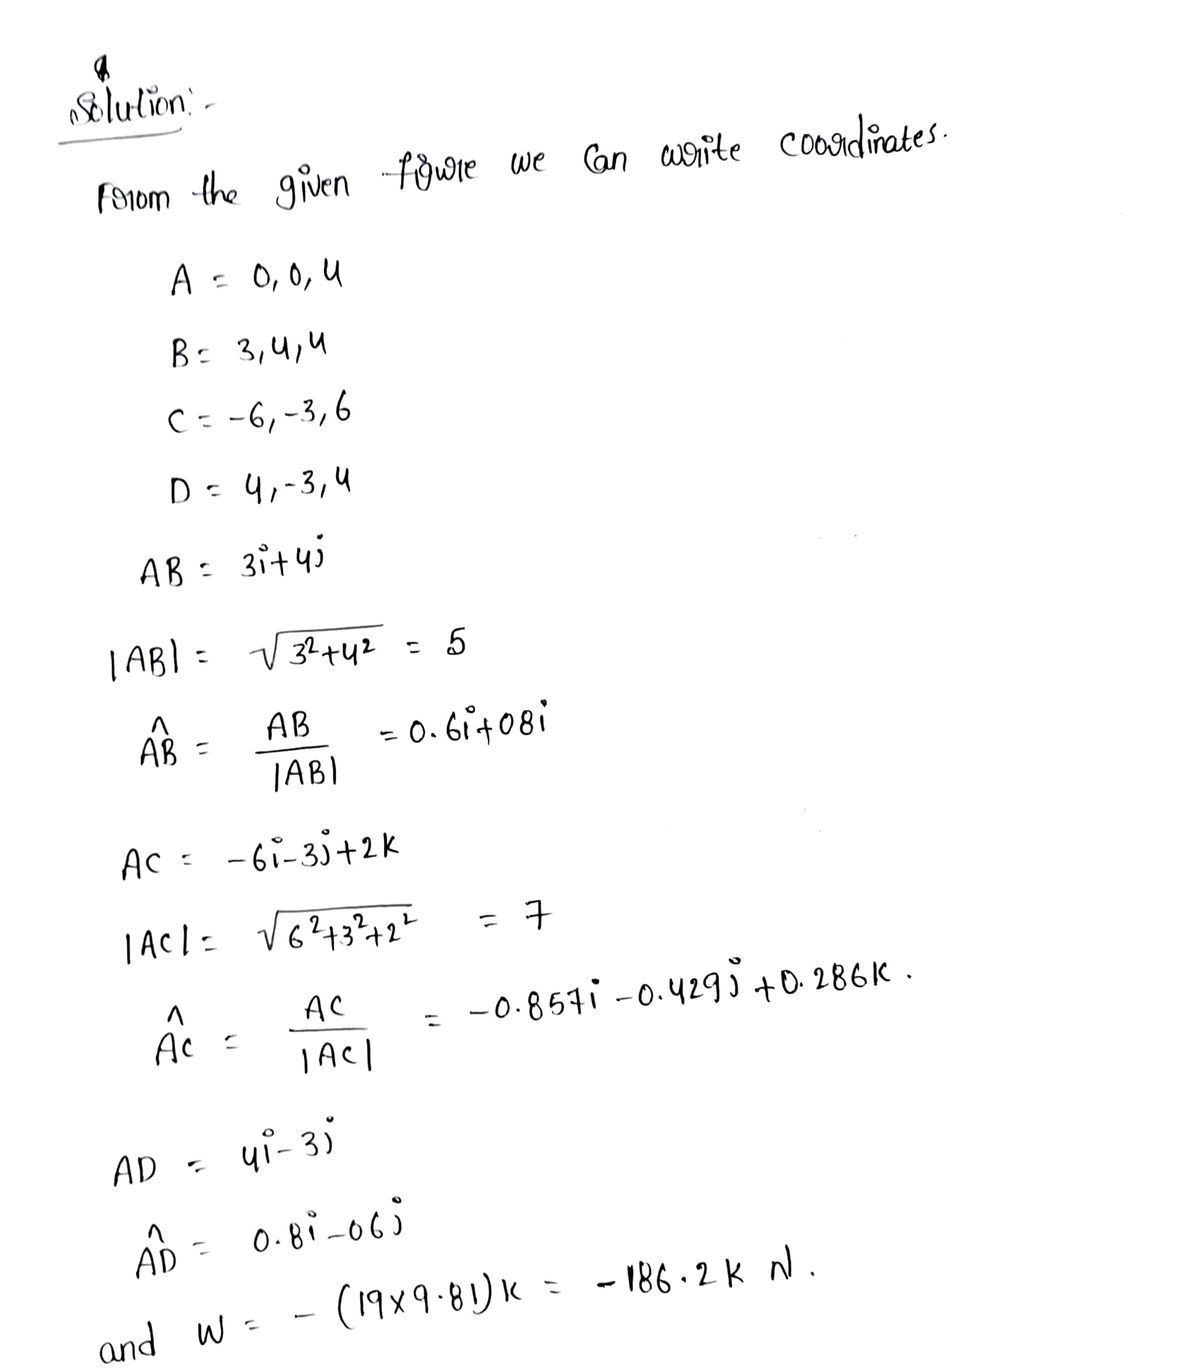 Solution:-
From the given figure we can write coordinates.
A = 0, 0, 4
B = 3, 4, 4
C = -6, -3, 6
D = 4, -3, 4
AB = 3i + 4j
|AB| = √3²+4² = 5
ÂB = AB / |AB| = 0.6i + 08i
AC = -6i - 3j + 2k
|AC| = √6²+3²+2² = 7
ÂC = AC / |AC| = -0.857i - 0.429j + 0.286k.
AD = 4i - 3j
ÂD = 0.8i - 06j
and W = - (19×9.81)k = -186.2k N.